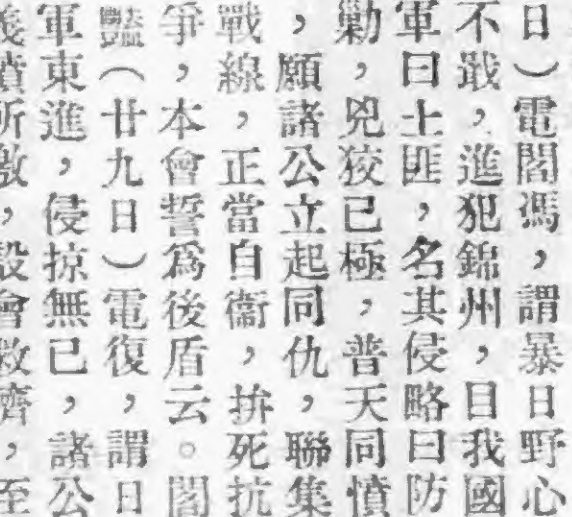 日）電閻馮，謂暴日野心
不戢，進犯錦州，目我國
軍曰土匪，名其侵略曰防
勦，兇狡已極，普天同憤
，願諸公立起同仇，聯集
戰線，正當自衞，拚死抗
爭，本會誓爲後盾云。閻
豔（廿九日）電復，謂日
軍東進，侵掠無已，諸公
義憤所激，設會救濟，至